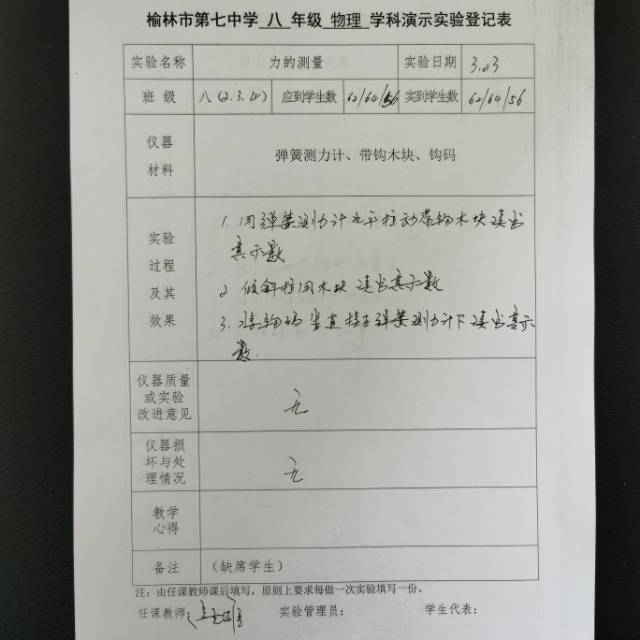 榆林市第七中学 八 年级 物理 学科演示实验登记表
实验名称 力的测量 实验日期 3.03
班 级 八(2.3.4) 应到学生数 62/64/56 实到学生数 62/64/56
仪器
材料
弹簧测力计、带钩木块、钩码
实验
过程
及其
效果
1.用弹簧测力计水平拉动带钩木块读出
其示数
2 倾斜拉动木块 读出其示数
3.将钩码竖直挂于弹簧测力计下读出其示
数.
仪器质量
或实验
改进意见
无
仪器损
坏与处
理情况
无
教学
心得
备注 (缺席学生)
注:由任课教师课后填写,原则上要求每做一次实验填写一份。
任课教师: 实验管理员: 学生代表: